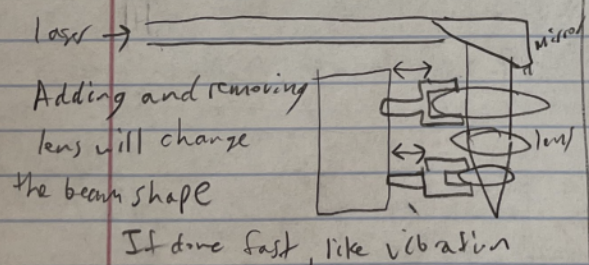 Laser →
mirror
Adding and removing
lens will change
lens
the beam shape
If done fast, like vibration